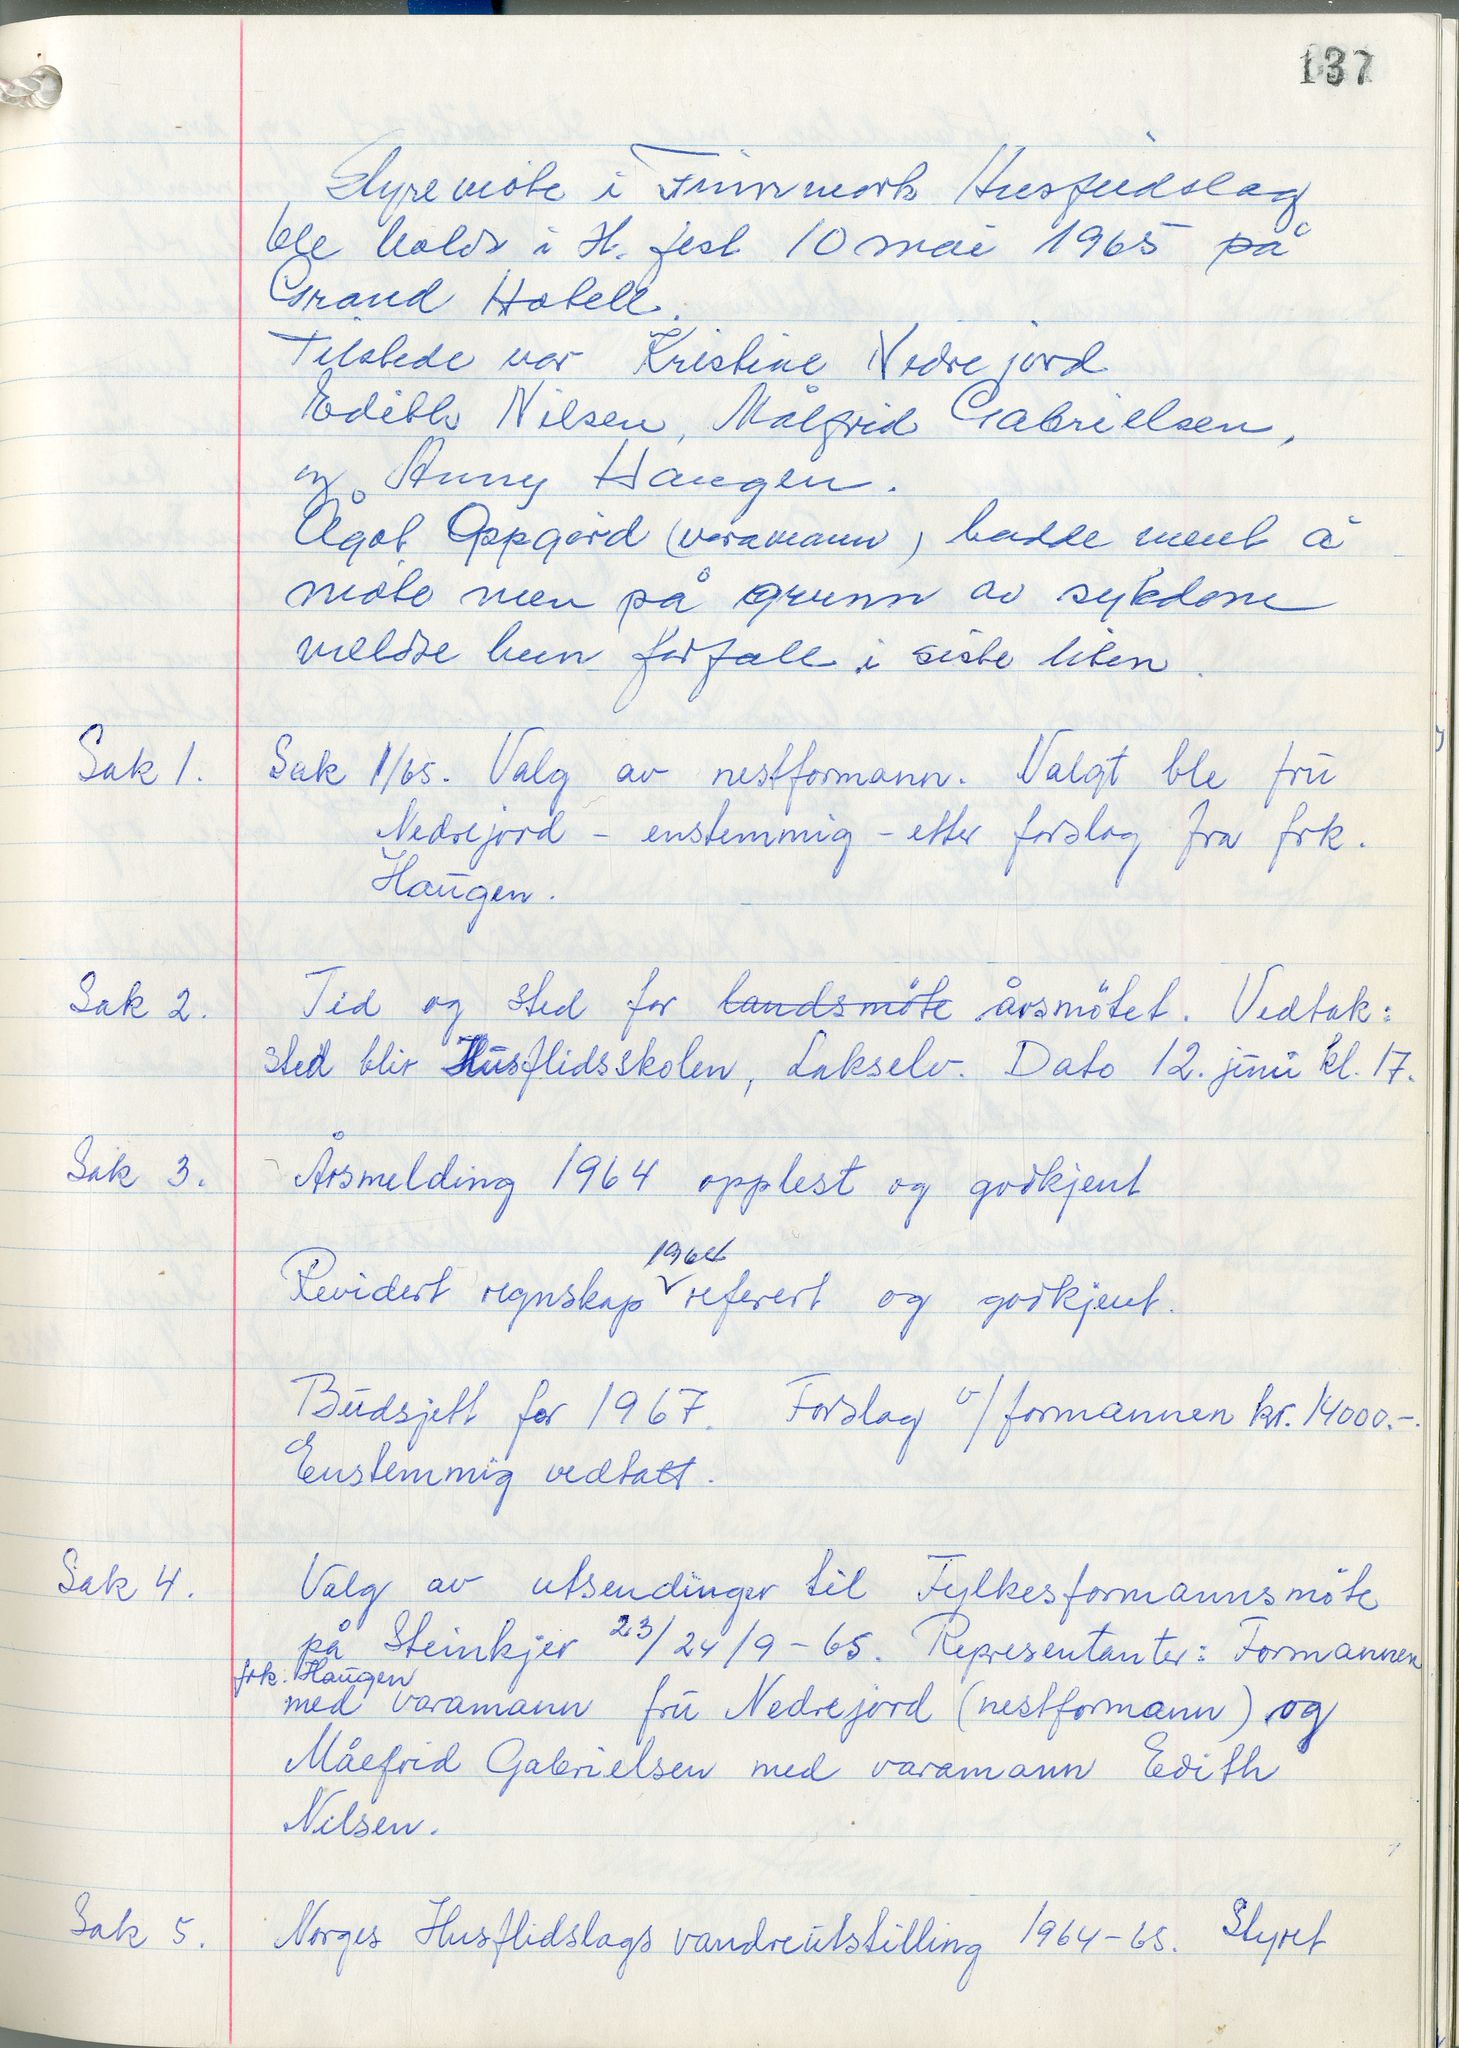 137
Styremöte i Finnmark Husflidslag
ble holdt i H. fest 10 mai 1965 på
Grand Hotell.
Tilstede var Kristine Nedrejord
Edith Nilsen, Målfrid Gabrielsen,
og Anny Haugen.
Ågot Oppgård (varamann) hadde ment å
möte men på grunn av sykdom
meldte hun forfall i siste liten.
Sak 1. Sak 1/65. Valg av nestformann. Valgt ble fru
Nedrejord - enstemmig - etter forslag fra frk.
Haugen.
Sak 2. Tid og sted for landsmöte årsmötet. Vedtak:
sted blir Husflidsskolen, Lakselv. Dato 12. juni kl. 17.
Sak 3. Årsmelding 1964 opplest og godkjent
1964
Revidert regnskap referert og godkjent.
Budsjett for 1967. Forslag v/formannen kr. 14000.-.
Enstemmig vedtatt.
Sak 4. Valg av utsendinger til Fylkesformannsmöte
på Steinkjer 23/24/9-65. Representanter: Formannen
frk. Haugen
med varamann fru Nedrejord (nestformann) og
Målfrid Gabrielsen med varamann Edith
Nilsen.
Sak 5. Norges Husflidslags vandreutstilling 1964-65. Styret